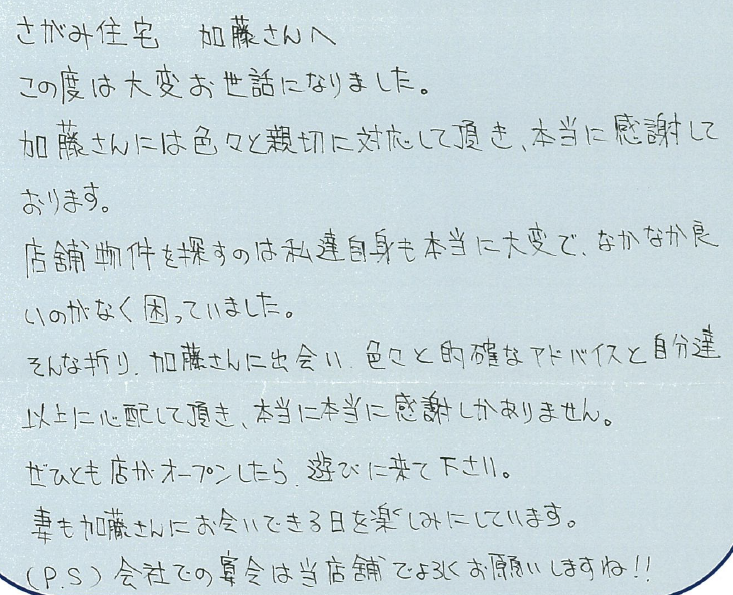 さがみ住宅　加藤さんへ
この度は大変お世話になりました。
加藤さんには色々と親切に対応して頂き、本当に感謝して
おります。
店舗物件を探すのは私達自身も本当に大変で、なかなか良
いのがなく困っていました。
そんな折り、加藤さんに出会い、色々と的確なアドバイスと自分達
以上に心配して頂き、本当に本当に感謝しかありません。
ぜひとも店がオープンしたら、遊びに来て下さい。
妻も加藤さんにお会いできる日を楽しみにしています。
(P.S) 会社での宴会は当店舗でよろしくお願いしますね!!